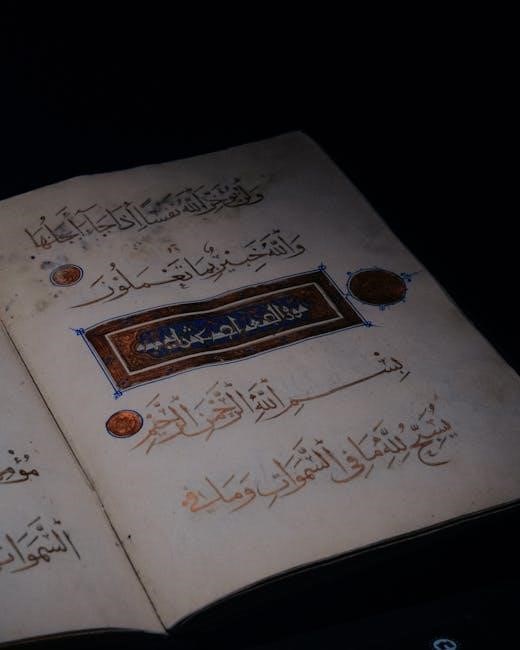 وَلَن يُؤَخِّرَ ٱللَّهُ نَفْسًا إِذَا جَآءَ أَجَلُهَا
وَٱللَّهُ خَبِيرٌ بِمَا تَعْمَلُونَ
بِسْمِ ٱللَّهِ ٱلرَّحْمَٰنِ ٱلرَّحِيمِ
يُسَبِّحُ لِلَّهِ مَا فِى ٱلسَّمَٰوَاتِ وَمَا فِى
ٱلسَّمَٰوَاتِ